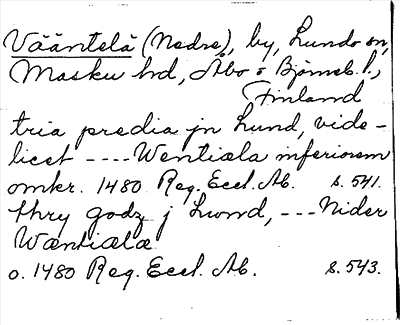 Vääntelä (Nedre), by, Lundo sn,
Masku hd, Åbo o Björneb. l.,
Finland
tria predia jn Lund, vide-
licet ---- Wentiæla inferiorem
omkr. 1480 Reg. Eccl. Ab. s. 541.
thry godz j Lwnd, --- Nider
Wæntiælæ
o. 1480 Reg. Eccl. Ab. s. 543.